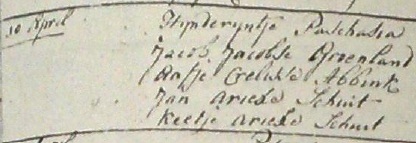 10 April Wynderyntje Paschasia
Jacob Jacobse Groenland
Aafje Crelisse Abbink
Jan Ariese Schuit
Keetje Ariese Schuit